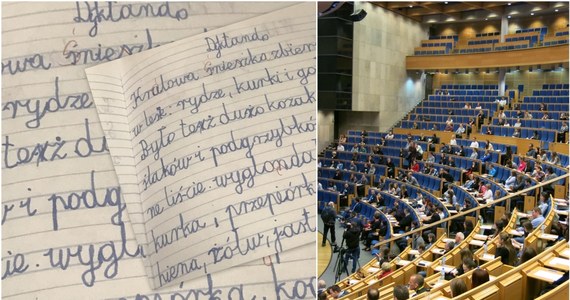 Dyktando
owa śniesz
rydze
terz du
w i podg
cie. wygl
Dyktando
Krulowa śnieszka zbier
rydze, kurki i go
Było terz dużo kozak
ślaków i podgrzybkó
ne liście. wyglonda
kurka, przepiórk
hiena, żółw, jast